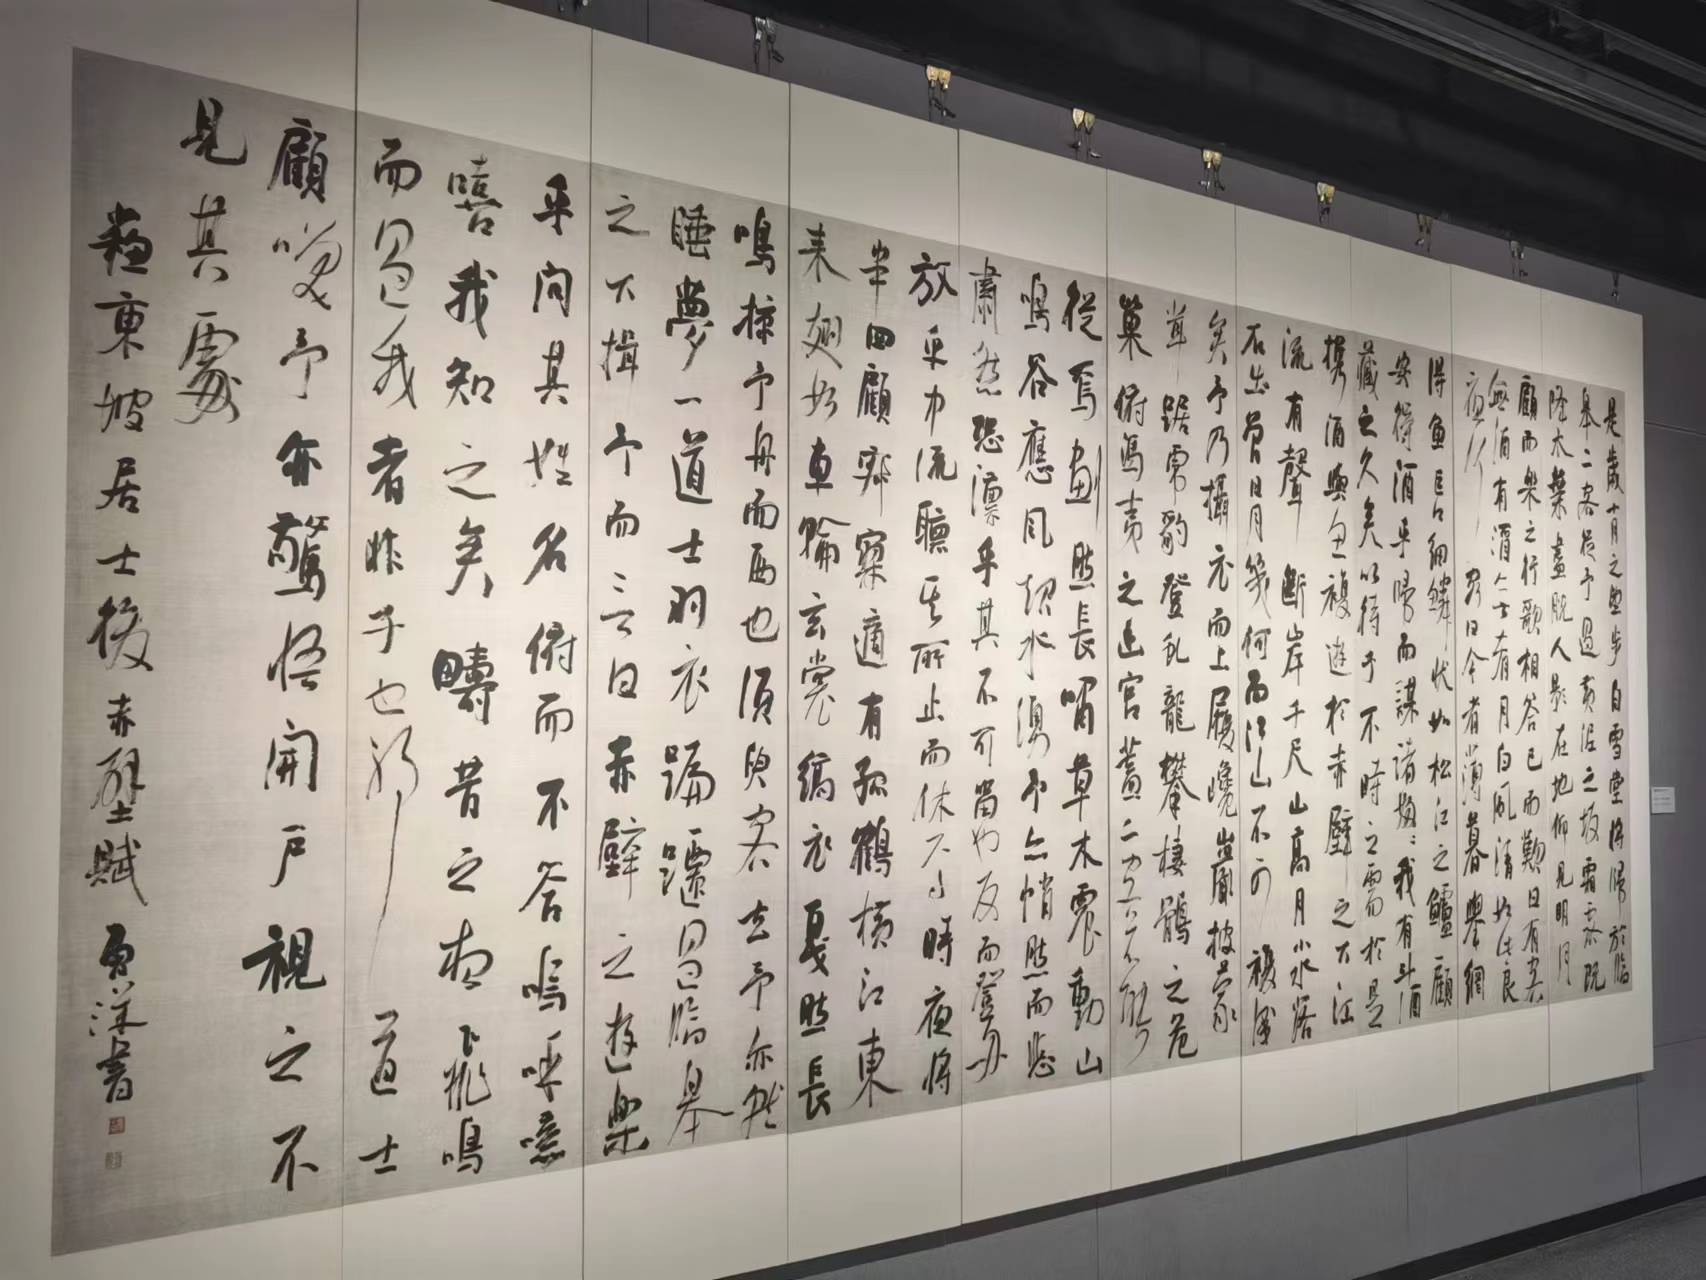 是歲十月之望步自雪堂將歸於臨
皋二客從予過黃泥之坂霜露既
降木葉盡脫人影在地仰見明月
顧而樂之行歌相答已而歎曰有客
無酒有酒無肴月白風清如此良
夜何 客曰今者薄暮舉網
得魚巨口細鱗狀如松江之鱸顧
安得酒乎歸而謀諸婦〻我有斗酒
藏之久矣以待子不時之需於是
攜酒與魚復遊於赤壁之下江
流有聲斷岸千尺山高月小水落
石出曾日月幾何而江山不可復識
矣予乃攝衣而上履巉巖披蒙
茸踞虎豹登虬龍攀棲鶻之危
巢俯馮夷之幽宮蓋二客不能
從焉劃然長嘯草木震動山
鳴谷應風起水湧予亦悄然而悲
肅然恐凜乎其不可留也反而登舟
放乎中流聽其所止而休時夜將
半四顧寂寥適有孤鶴橫江東
來翅如車輪玄裳縞衣戛然長
鳴掠予舟而西也須臾客去予亦就
睡夢一道士羽衣蹁躚過臨皋
之下揖予而言曰赤壁之遊樂
乎問其姓名俯而不答嗚呼噫
嘻我知之矣疇昔之夜飛鳴
而過我者非子也耶 道士
顧笑予亦驚悟開戶視之不
見其處
東坡居士後赤壁賦 書